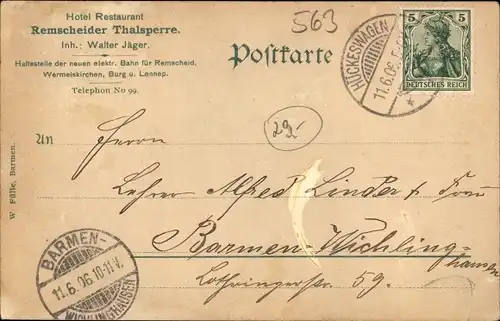 Hotel Restaurant
Remscheider Thalsperre.
Inh.: Walter Jäger.
Haltestelle der neuen elektr. Bahn für Remscheid,
Wermelskirchen, Burg u. Lennep.
Telephon No 99.
563
Postkarte
HÜCKESWAGEN
11.6.06
5 5
DEUTSCHES REICH
29.-
An
Herrn
Lehrer Alfred Linder & Frau
Barmen-Wichling-
hausen
Lothringerstr. 59.
W. Fülle, Barmen.
BARMEN-
11.6.06.10-11V.
WICHLINGHAUSEN